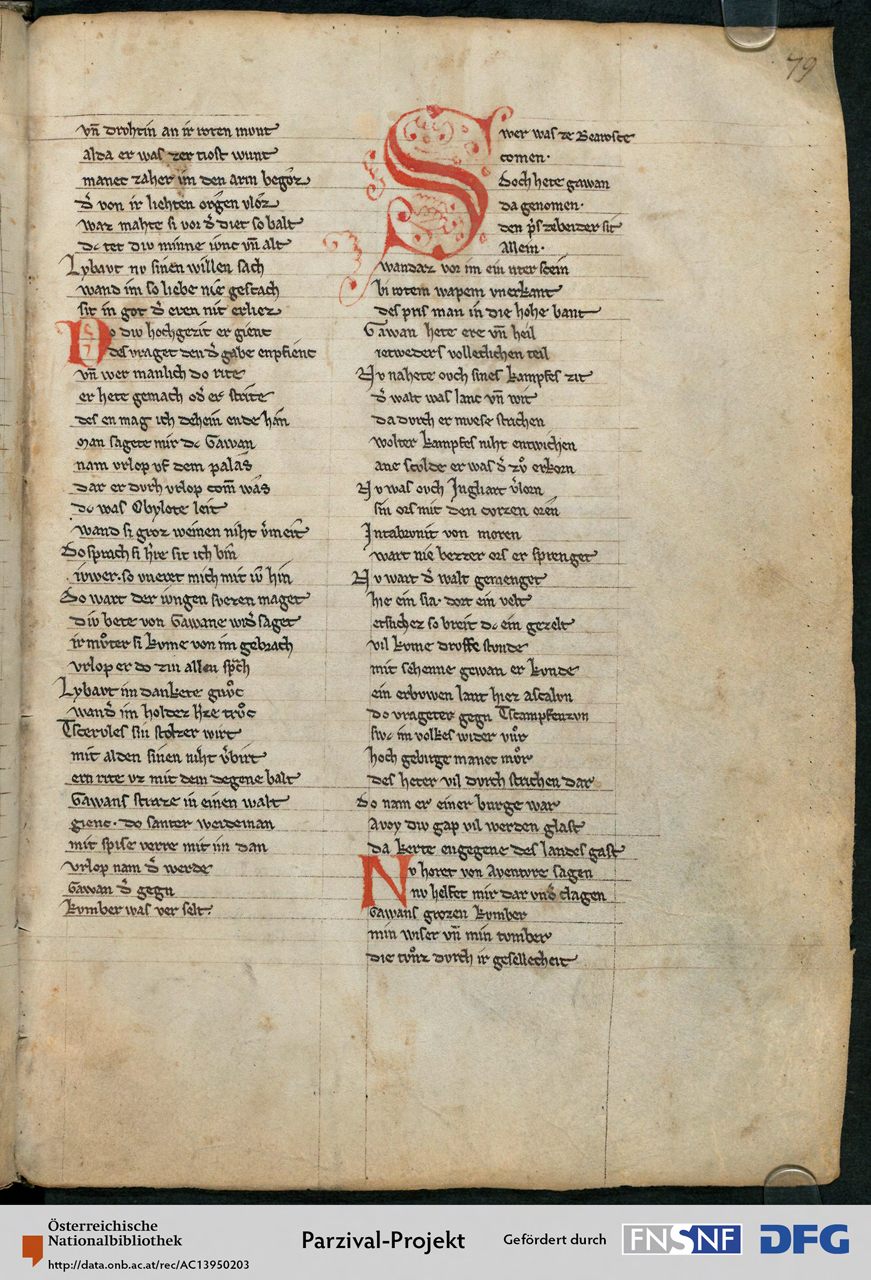 79
vn̄ drvhtin an ir roten mvnt
alda er was zer tiost wunt
manec zaher im den arm begoz
d͛ von ir liehten ovgen vloz
waz mahte si vor d͛ diet so balt
dc tet div minne ivnc vn̄ alt
Lybavt nv sinen willen sach
wand im so liebe nie geschach
sit in got d͛ even nit erliez
Do div hochgezit er gienc
des vraget den d͛ gabe enpfienc
vn̄ wer manlich do rite
er hete gemach od͛ er strite
des en mag ich dehein ende han
Man sagete mir dc Gawan
nam vrlop vf dem palas
dar er dvrh vrlop com̄ was
dc was Obylote leit
wand si groz weinen niht v͛meit
So sprach si h͛re sit ich bin
ivwer. so vneret mich mit iv̄ hin
Do wart der ivngen svezen maget
div bete von Gawane wid͛ saget
ir mvͦter si kvme von im gebrach
vrlop er do zin allen sp͛ch
Lybavt im dankete gnvͦc
wand͛ im holdez h͛ze trvͦc
Tscervles sin stolzer wirt
mit alden sinen niht v͛birt
ern rite vz mit dem degene balt
Gawans straze in einen walt
gienc. do santer weideman
mit spise verre mit im dan
vrlop nam d͛ werde
Gawan d͛ gegn
kvmber was ver selt.
Swer was ze Bearoste
comen.
Doch hete gawan
da genomen.
den p͛s zebeider sit
Allein.
wandaz vor im ein riter schein
bi rotem wapem vnerkant
des pris man in die hohe bant
Gawan hete ere vn̄ heil
ietweders volleclichen teil
Nv nahete ovch sines kampfes zit
d͛ walt was lanc vn̄ wit
da dvrch er mvese strichen
wolter kampfes niht entwichen
ane schvlde er was d͛ zvͦ erkorn
Nv was ovch Ingliart v͛lorn
sin ors mit den cvrzen oren
Intabrvnit von moren
wart nie bezzer ors er sprenget
Nv wart d͛ walt gemenget
hie ein sla. dort ein velt
etslichez so breit dc ein gezelt
vil kvme drvffe stvnde
mit sehenne gewan er kvnde
ein erbvwen lant hiez ascalvn
do vrageter gegn Tscampfenzvn
swc im volkes wider vͦr
hoch gebirge manec mvͦr
des heter vil dvrch strichen dar
Do nam er einer bvrge war
Avoy div gap vil werden glast
da kerte engegene des landes gast
Nv horet von Aventvre sagen
nv helfet mir dar vnd͛ clagen
Gawans grozen kvmber
min wiser vn̄ min tvmber
die tvͦnz dvrch ir gesellecheit
Österreichische
Nationalbibliothek
http://data.onb.ac.at/rec/AC13950203
Parzival-Projekt
Gefördert durch
FNSNF
DFG